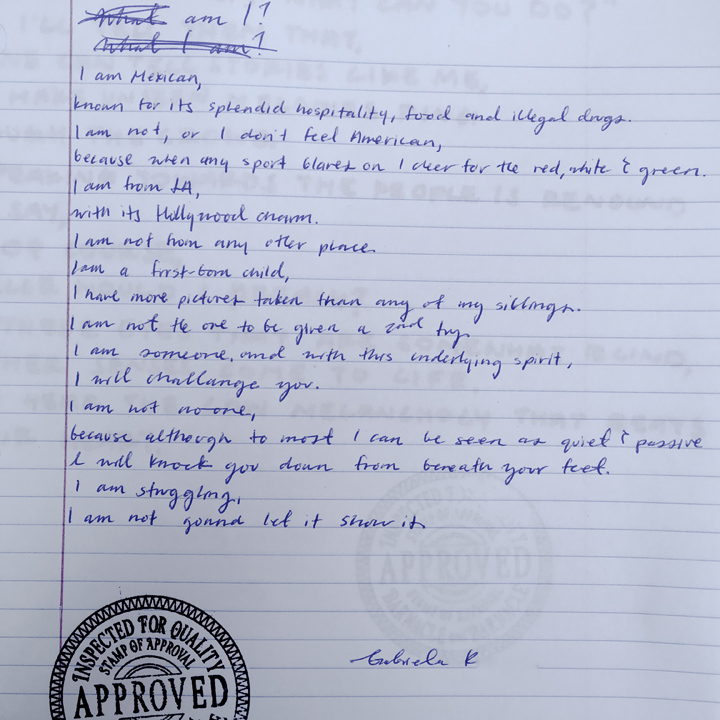 What am I?
What I am?
I am Mexican,
known for its splendid hospitality, food and illegal drugs.
I am not, or I don't feel American,
because when any sport blares on I cheer for the red, white & green.
I am from LA,
with its Hollywood charm.
I am not from any other place.
I am a first-born child,
I have more pictures taken than any of my siblings.
I am not the one to be given a 2nd try.
I am someone, and with this underlying spirit,
I will challange you.
I am not no-one,
because although to most I can be seen as quiet & passive
I will knock you down from beneath your feet.
I am struggling,
I am not gonna let it show it.
Gabriela R
INSPECTED FOR QUALITY
STAMP OF APPROVAL
APPROVED